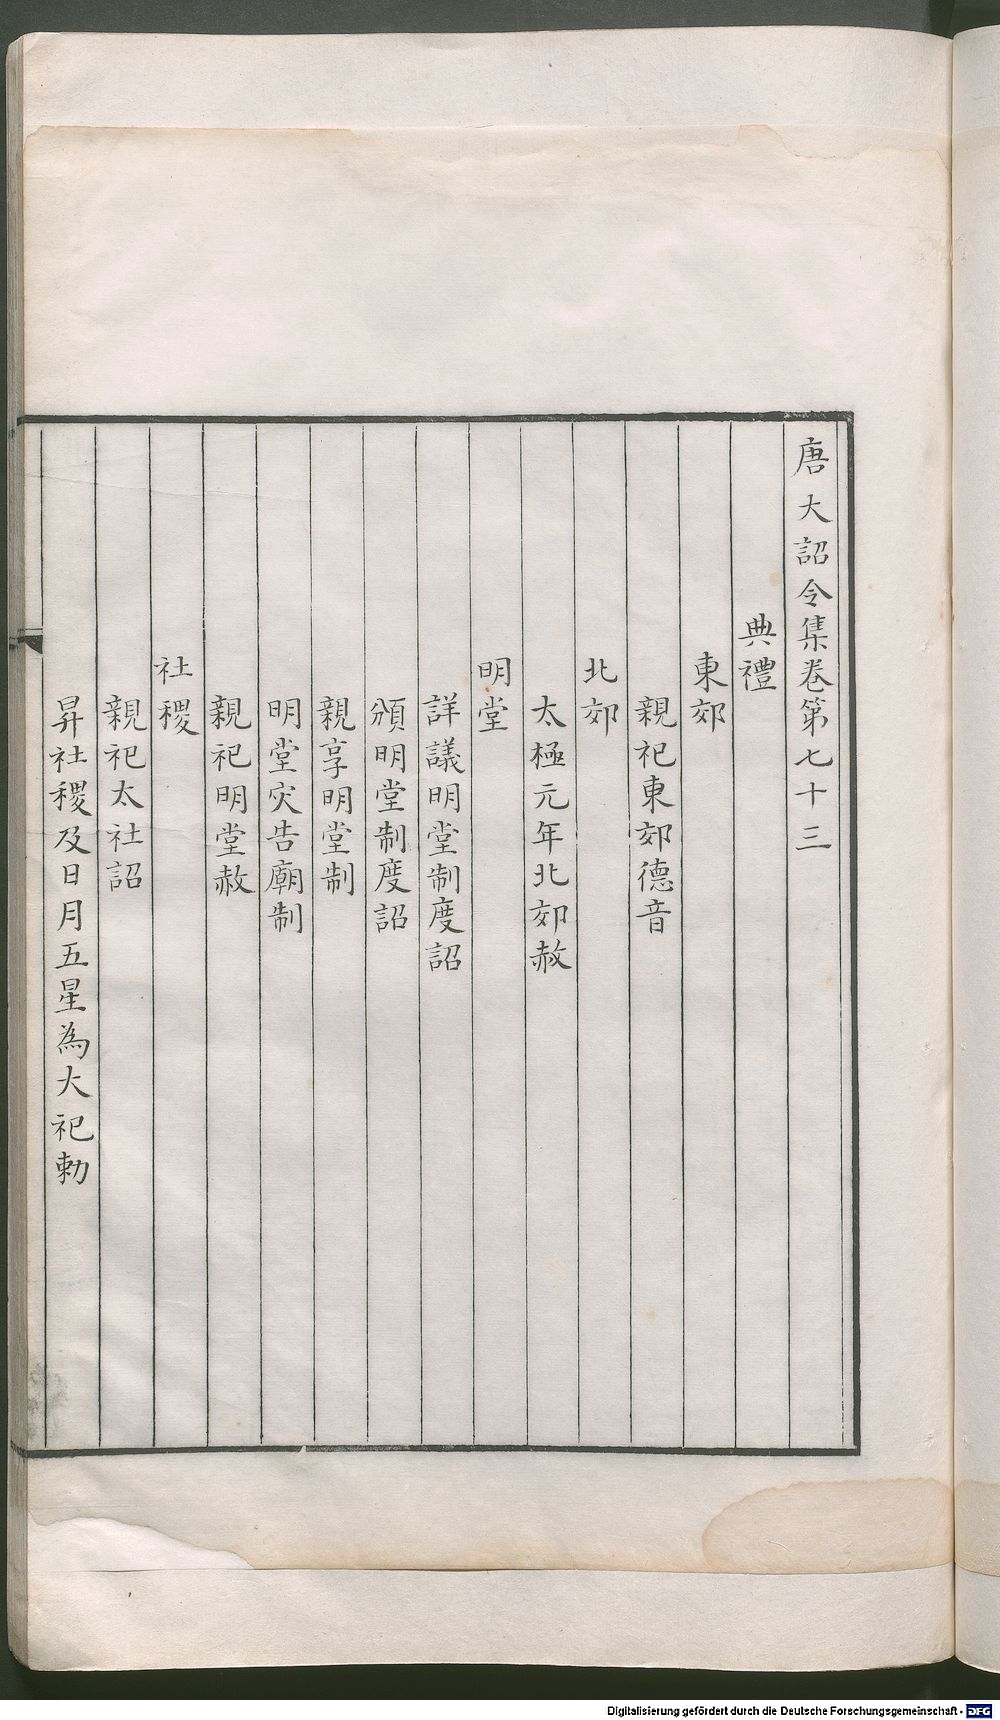 唐大詔令集卷第七十三
典禮
東郊
親祀東郊德音
北郊
太極元年北郊赦
明堂
詳議明堂制度詔
頒明堂制度詔
親享明堂制
明堂灾告廟制
親祀明堂赦
社稷
親祀太社詔
昇社稷及日月五星為大祀勅
Digitalisierung gefördert durch die Deutsche Forschungsgemeinschaft - DFG